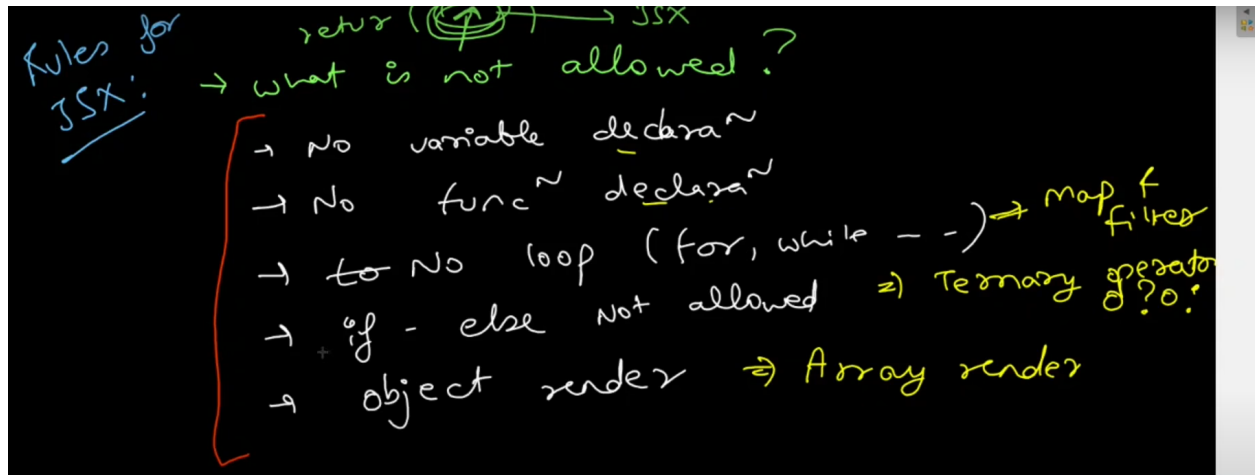 Rules for
JSX:
retur ( ) → JSX
→ what is not allowed?
→ No variable declara~
→ No func~ declara~
→ to No loop (for, while - -) ⇒ map & filter
→ if - else Not allowed ⇒ Ternary operator o?o:
→ object render ⇒ Array render